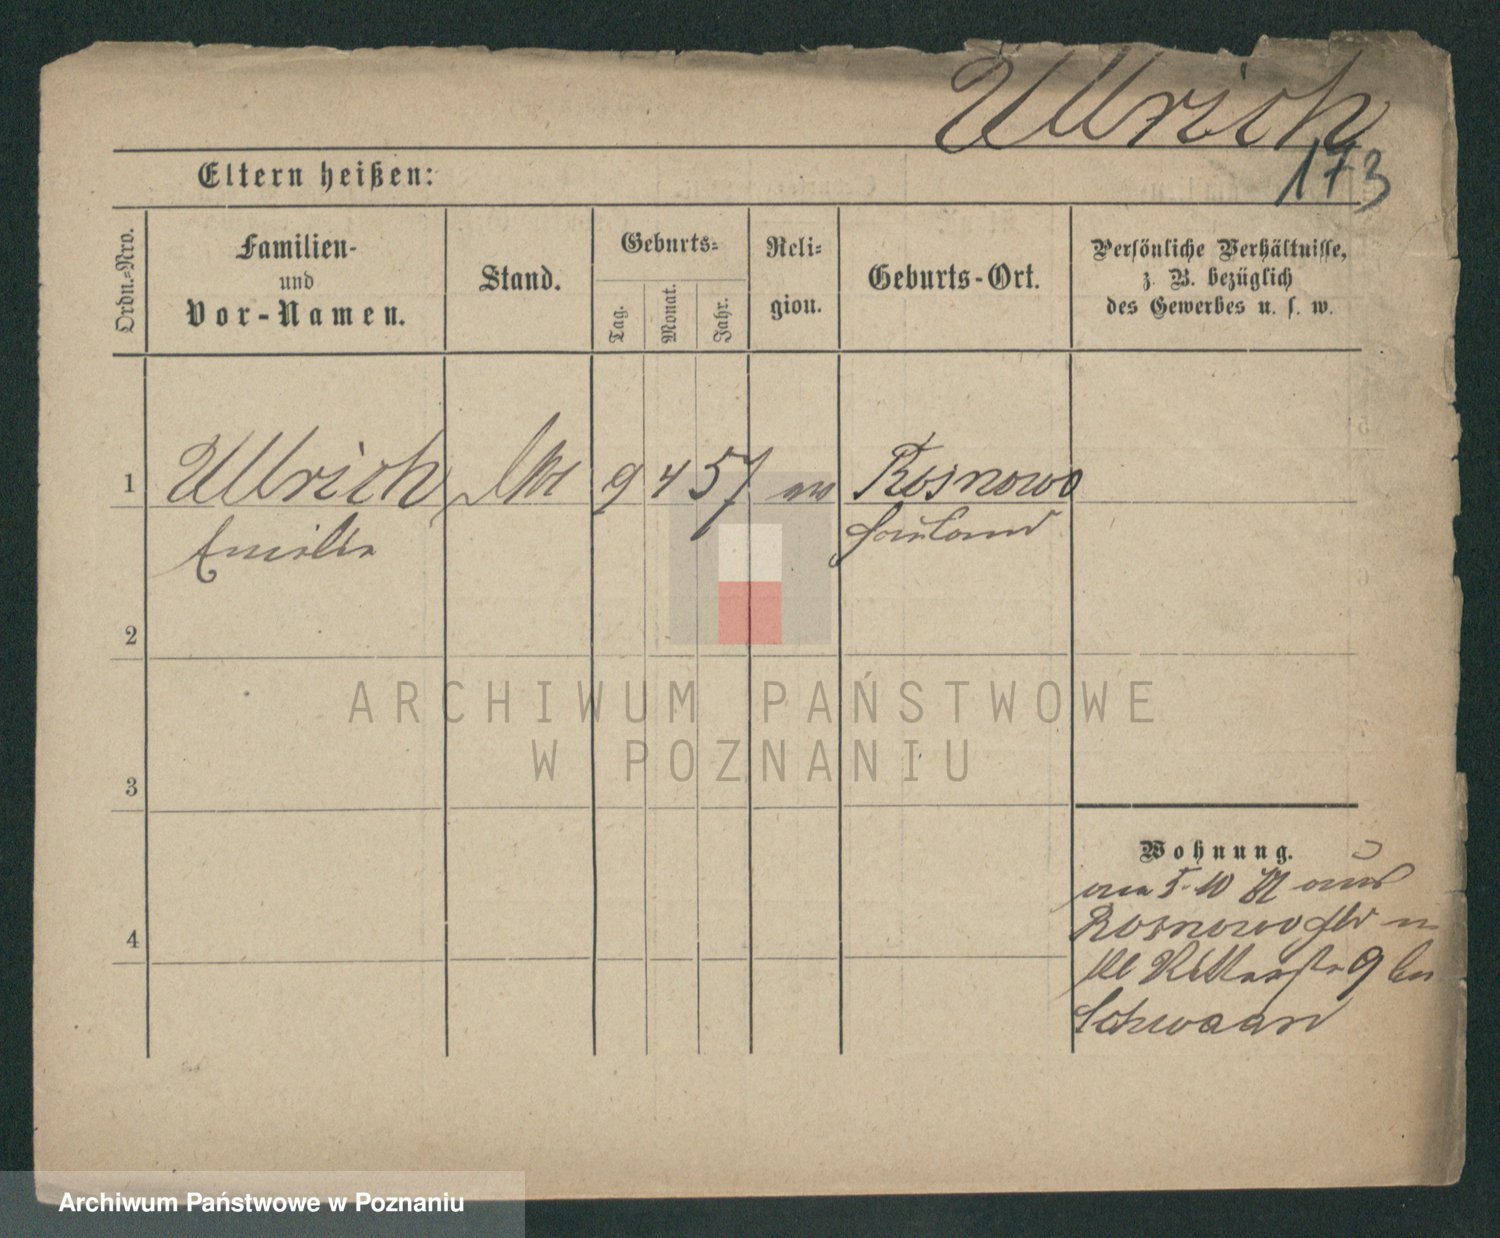 Ullrich
173
Eltern heißen:
Ordn.=Nro.
Familien-
und
Vor-Namen.
Stand.
Geburts=
Tag.
Monat.
Jahr.
Reli=
gion.
Geburts-Ort.
Persönliche Verhältnisse,
z. B. bezüglich
des Gewerbes u. s. w.
1
Ullrich
9 4 57
Rosnowo
Emilie
Hauland
2
3
4
Wohnung.
5. 10 aus
Rosnowo
Ritterstr 9 bei
ARCHIWUM PAŃSTWOWE
W POZNANIU
Archiwum Państwowe w Poznaniu